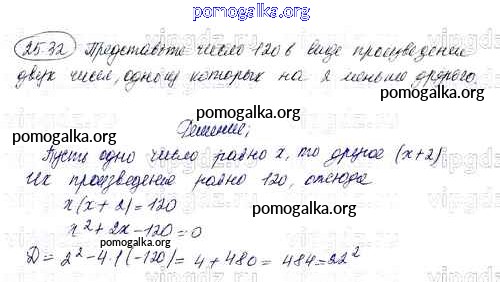 pomogalka.org
25.32 Представьте число 120 в виде произведения
двух чисел, одно из которых на 2 меньше другого.
pomogalka.org
pomogalka.org
Решение:
Пусть одно число равно x, то другое (x+2)
pomogalka.org
Их произведение равно 120, отсюда
x(x+2)=120
pomogalka.org
x²+2x-120=0
pomogalka.org
D=2²-4·1(-120)=4+480=484=22²